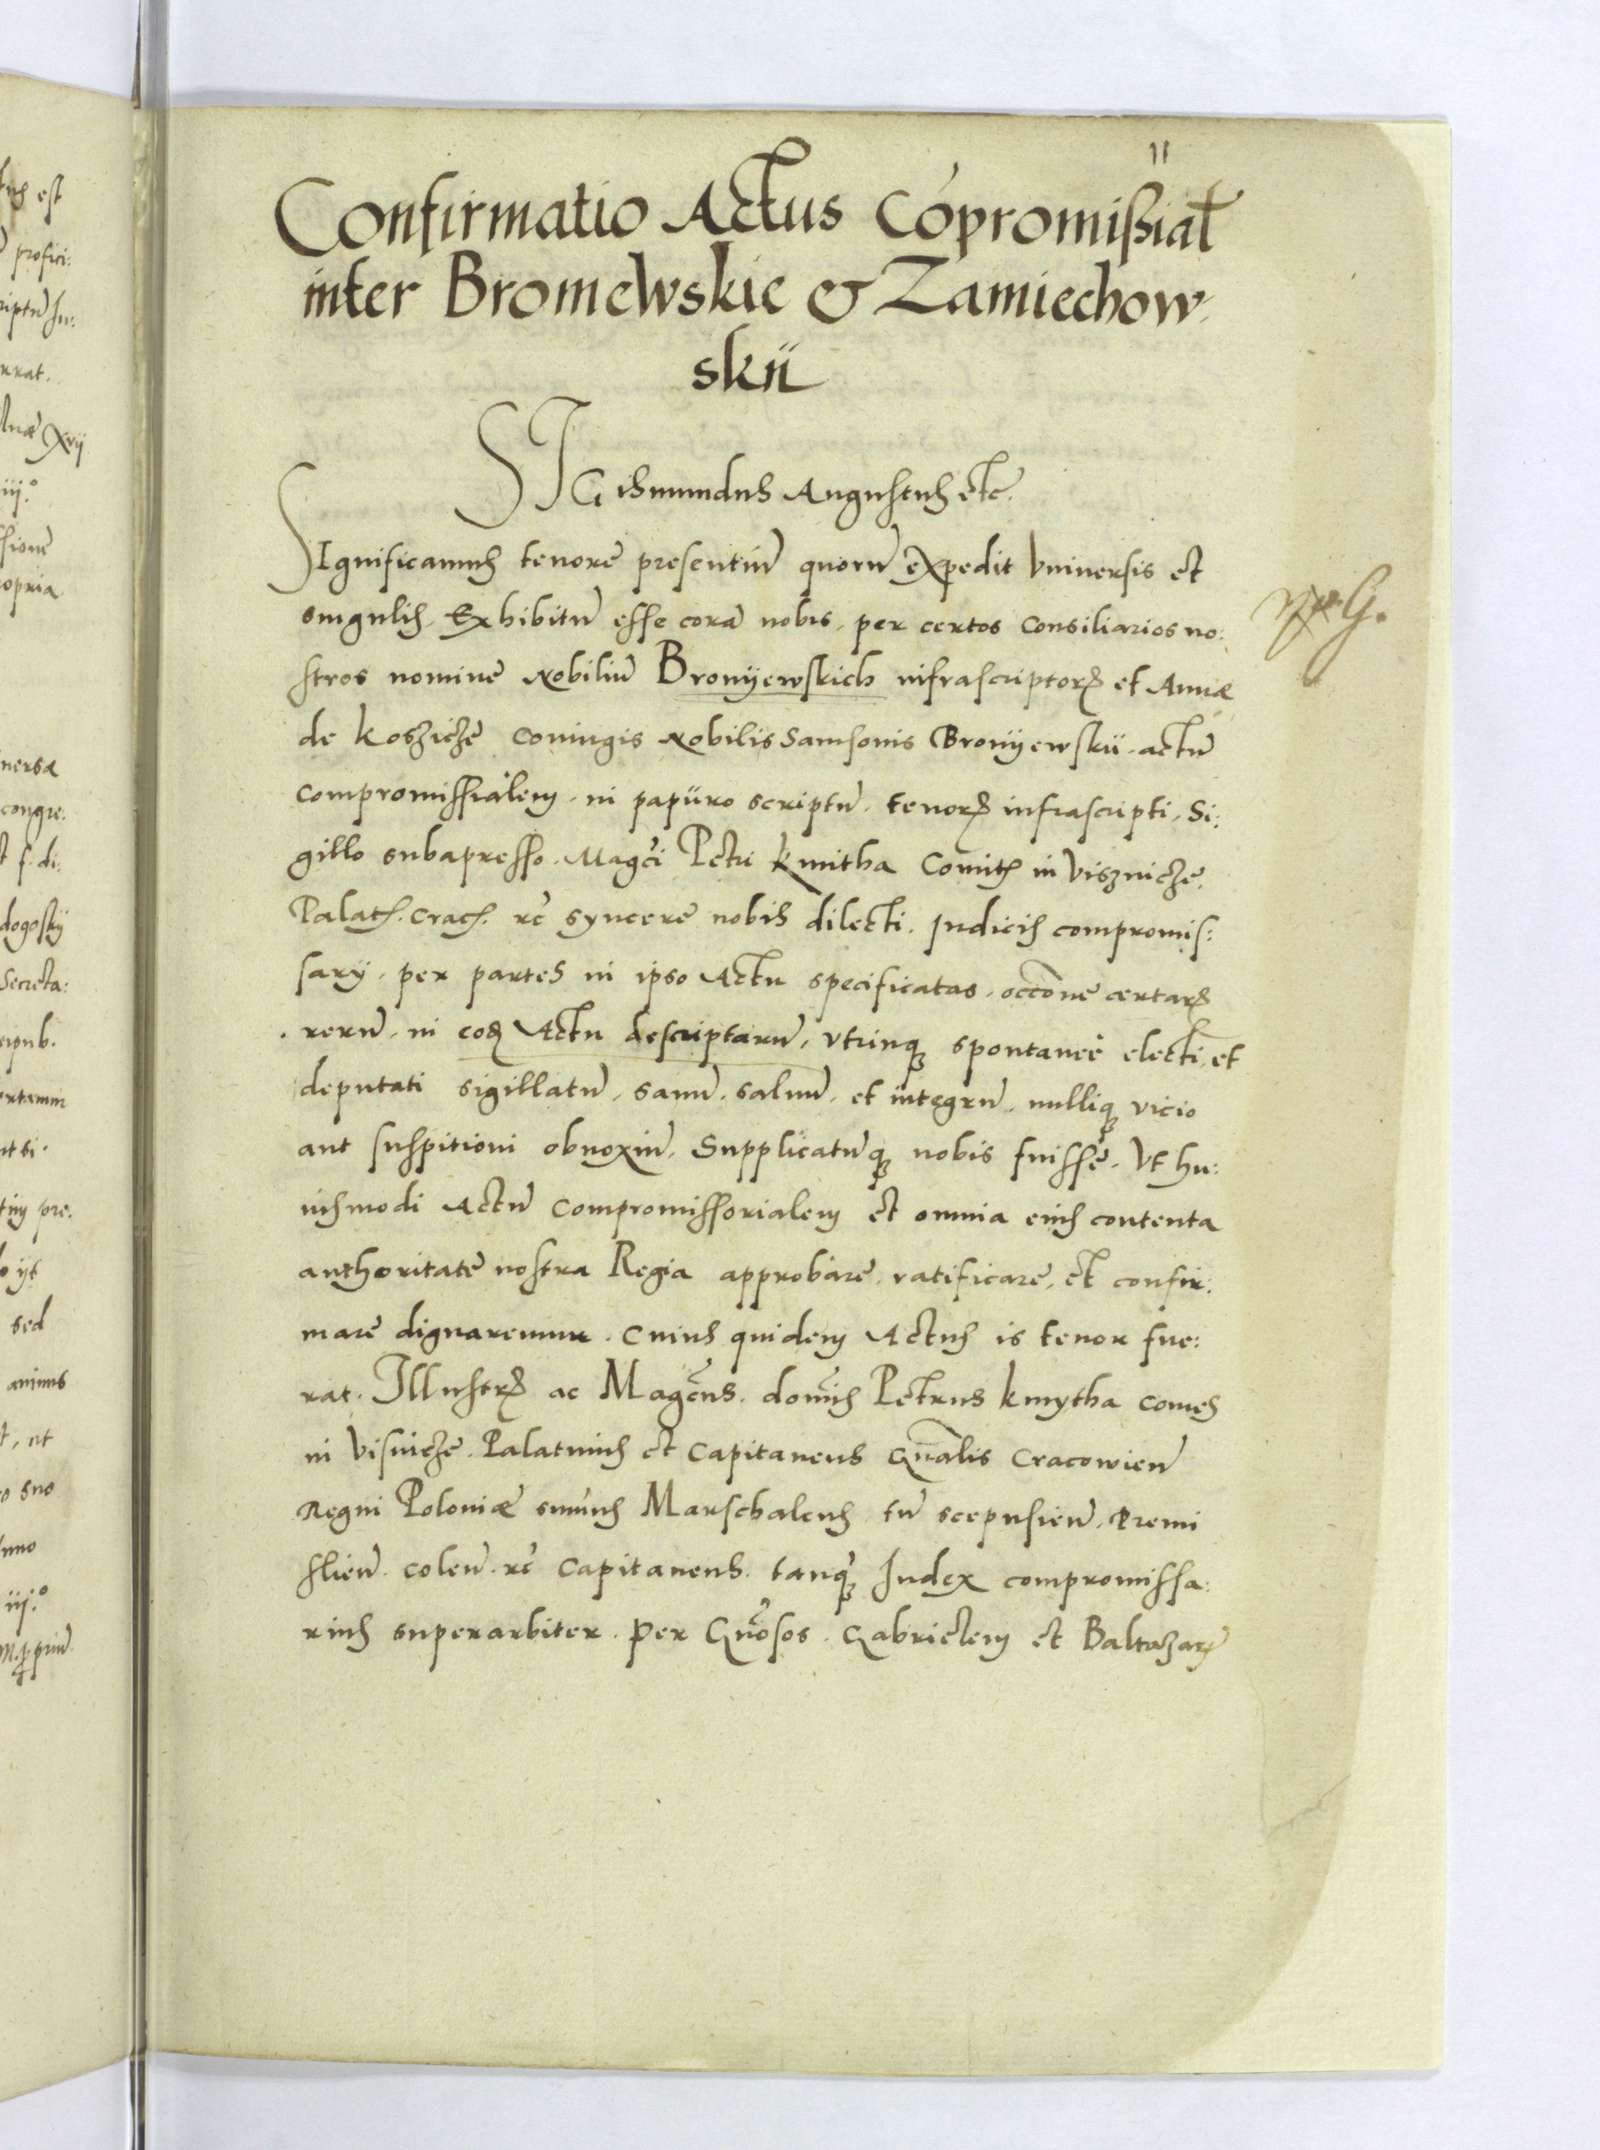 11
Confirmatio Actus Cōpromissial
inter Bromewskie & Zamiechow-
skii
SIGismundus Augustus etc.
SIgnificamus tenorē presentiū quorū expedit vniuersis et
singulis. Exhibitū esse corā nobis, per certos Consiliarios no:
stros nominē Nobiliū Bronÿewskich infrascriptorꝝ et Annæ
de Koszicze Coniugis Nobilis Samsonis Bronÿewskii actū
compromissialem in papiiro scriptū, tenorꝝ infrascripti, Si:
gillo subapresso Magci Petri Kmitha Comitis in Viszniczē,
Palat. Crac. rc̄ syncerē nobis dilecti. Iudicis compromis:
sarij, per partes in ipso Actu specificatas, occōnē certarꝝ
rerū, in eodꝫ Actu descriptarū, vtrinqꝫ spontaneè electi, et
deputati sigillatū, sanū, saluū, et integrū, nulliqꝫ vicio
aut suspitioni obnoxiū. Supplicatūqꝫ nobis fuissē, vt hu:
iusmodi Actū compromissorialem et omnia eius contenta
authoritatē nostra Regia approbarē, ratificarē, et confir:
marē dignaremur. Cuius quidem Actus is tenor fue:
rat. Illustrꝭ ac Magcūs. domūs Petrus Kmytha comes
in Viśniczē Palatinus et Capitaneus Gn̄alis Cracowien̄
Regni Poloniæ sum̄us Marschalcus tū scepusien̄. Premi
slien̄. colen̄. rc̄ Capitaneus. tanqꝫ Iudex compromissa:
rius superarbiter. per Gn̄osos. Gabrielem et Baltazarꝫ